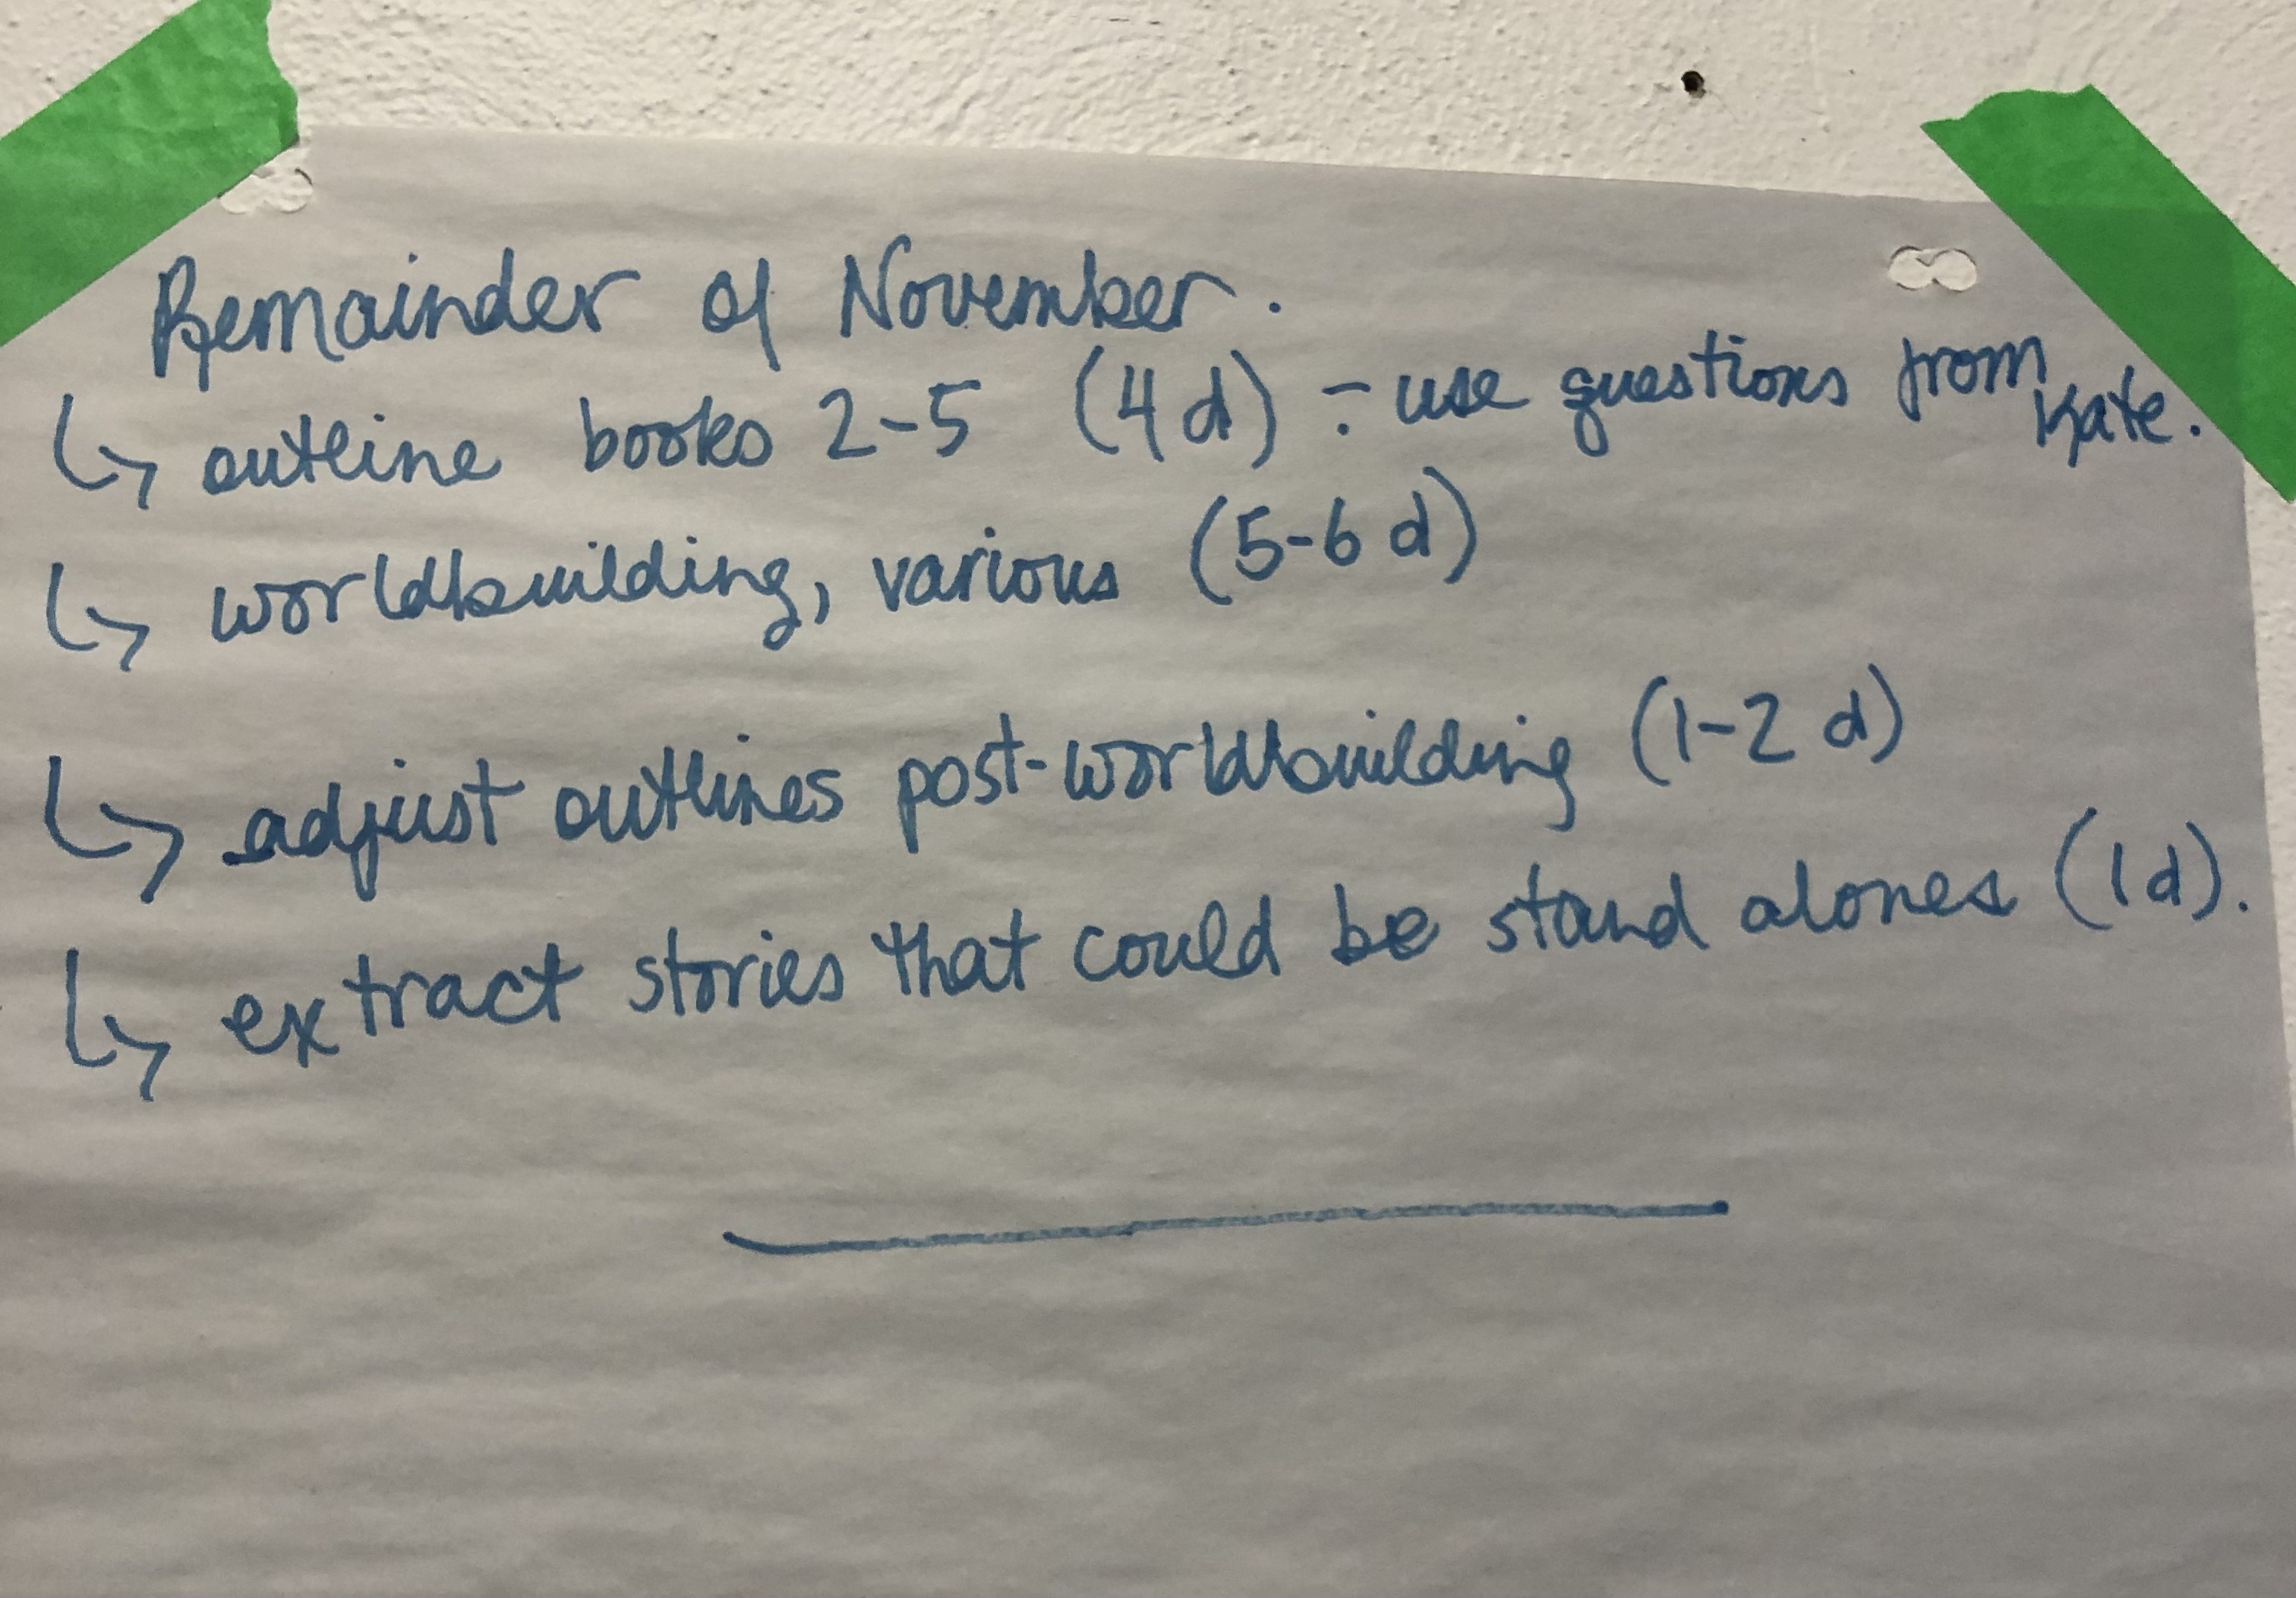 Remainder of November.
↳ outline books 2-5 (4d) ÷ use questions from Kate.
↳ worldbuilding, various (5-6 d)
↳ adjust outlines post-worldbuilding (1-2 d)
↳ extract stories that could be stand alones (1d).